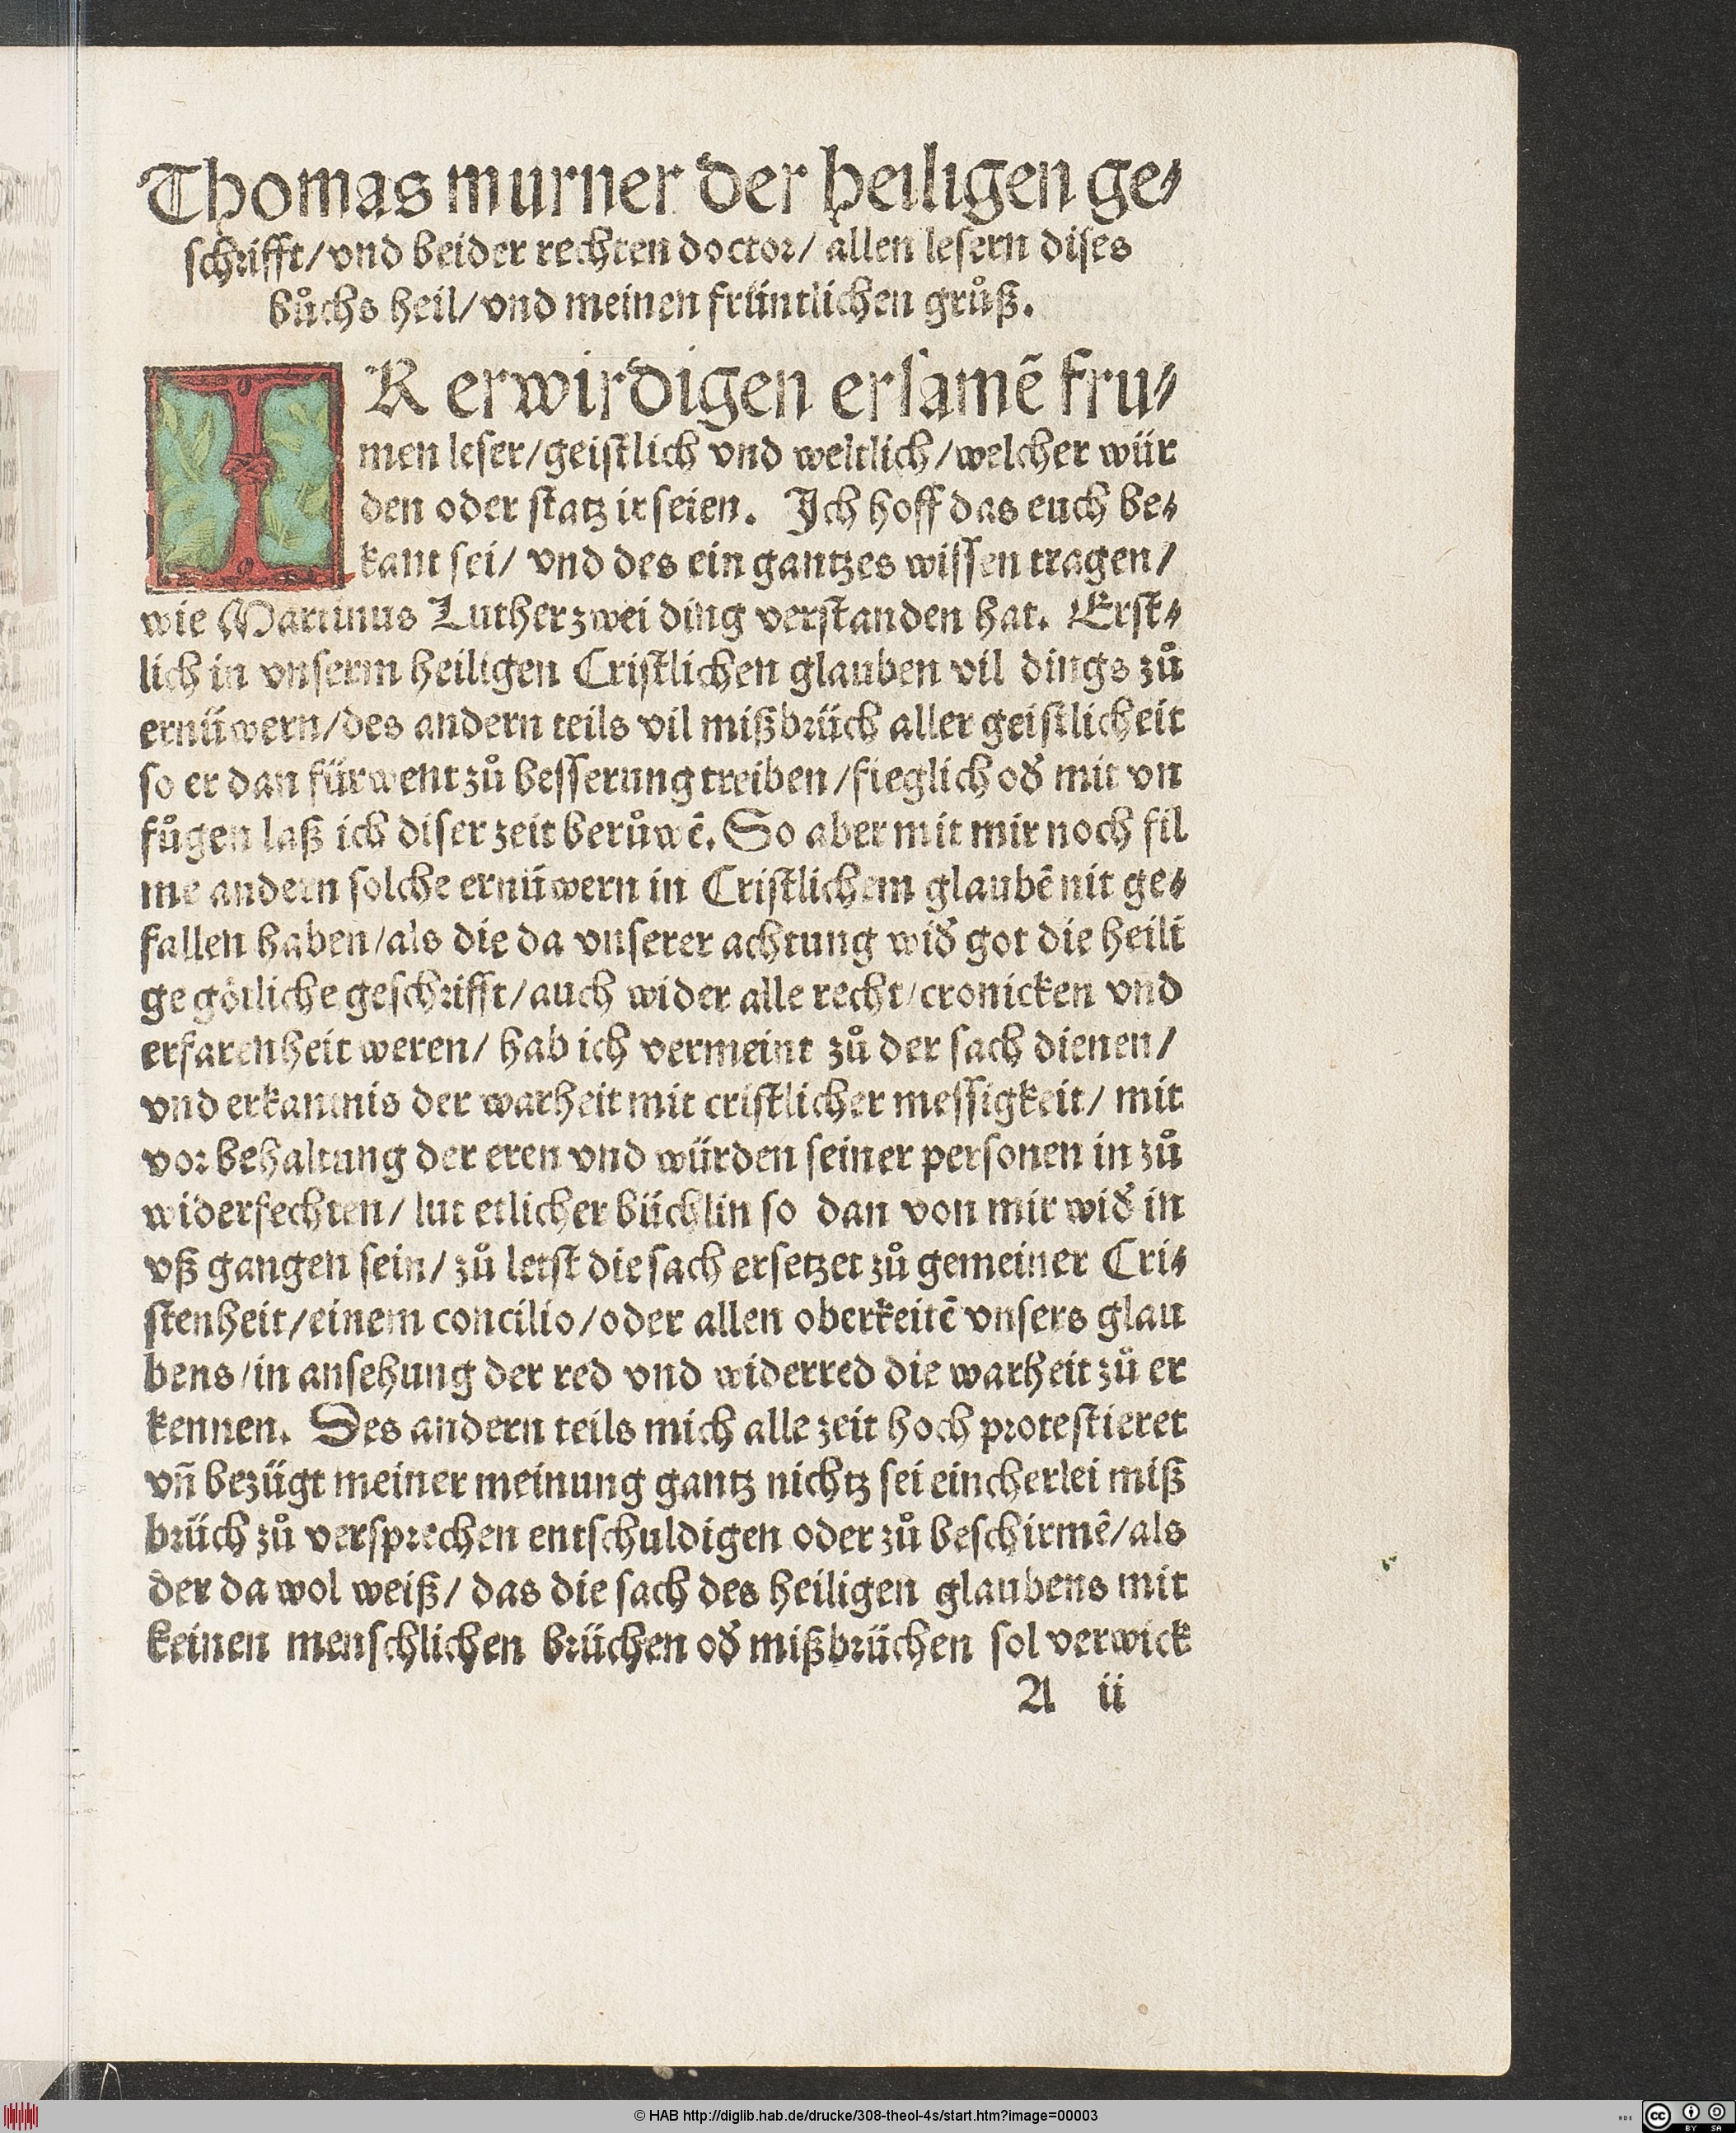 Thomas murner der heiligen ge⸗
schrifft/vnd beider rechten doctor/ allen lesern dises
bůchs heil/vnd meinen früntlichen grůß.
IR erwirdigen ersamē fru⸗
men leser/geistlich vnd weltlich/welcher wür
den oder statz ir seien. Ich hoff das euch be⸗
kant sei/ vnd des ein gantzes wissen tragen/
wie Martinus Luther zwei ding verstanden hat. Erst⸗
lich in vnserm heiligen Cristlichen glauben vil dings zů
ernüwern/des andern teils vil mißbrüch aller geistlicheit
so er dan fürwent zů besserung treiben/fieglich od̛ mit vn
fůgen laß ich diser zeit berůwē. So aber mit mir noch fil
me andern solche ernüwern in Cristlichem glaubē nit ge⸗
fallen haben/als die da vnserer achtung wid̛ got die heili
ge götliche geschrifft/auch wider alle recht/cronicken vnd
erfarenheit weren/ hab ich vermeint zů der sach dienen/
vnd erkantnis der warheit mit cristlicher messigkeit/ mit
vor behaltung der eren vnd würden seiner personen in zů
widerfechten/ lut etlicher büchlin so dan von mir wid̛ in
vß gangen sein/ zů letst die sach ersetzet zů gemeiner Cri⸗
stenheit/einem concilio/oder allen oberkeitē vnsers glau
bens/in ansehung der red vnd widerred die warheit zů er
kennen. Des andern teils mich alle zeit hoch protestieret
vñ bezügt meiner meinung gantz nichtz sei eincherlei miß
brüch zů versprechen entschuldigen oder zů beschirmē/als
der da wol weiß/ das die sach des heiligen glaubens mit
keinen menschlichen brüchen od̛ mißbrüchen sol verwick
A ii
© HAB http://diglib.hab.de/drucke/308-theol-4s/start.htm?image=00003
cc BY SA